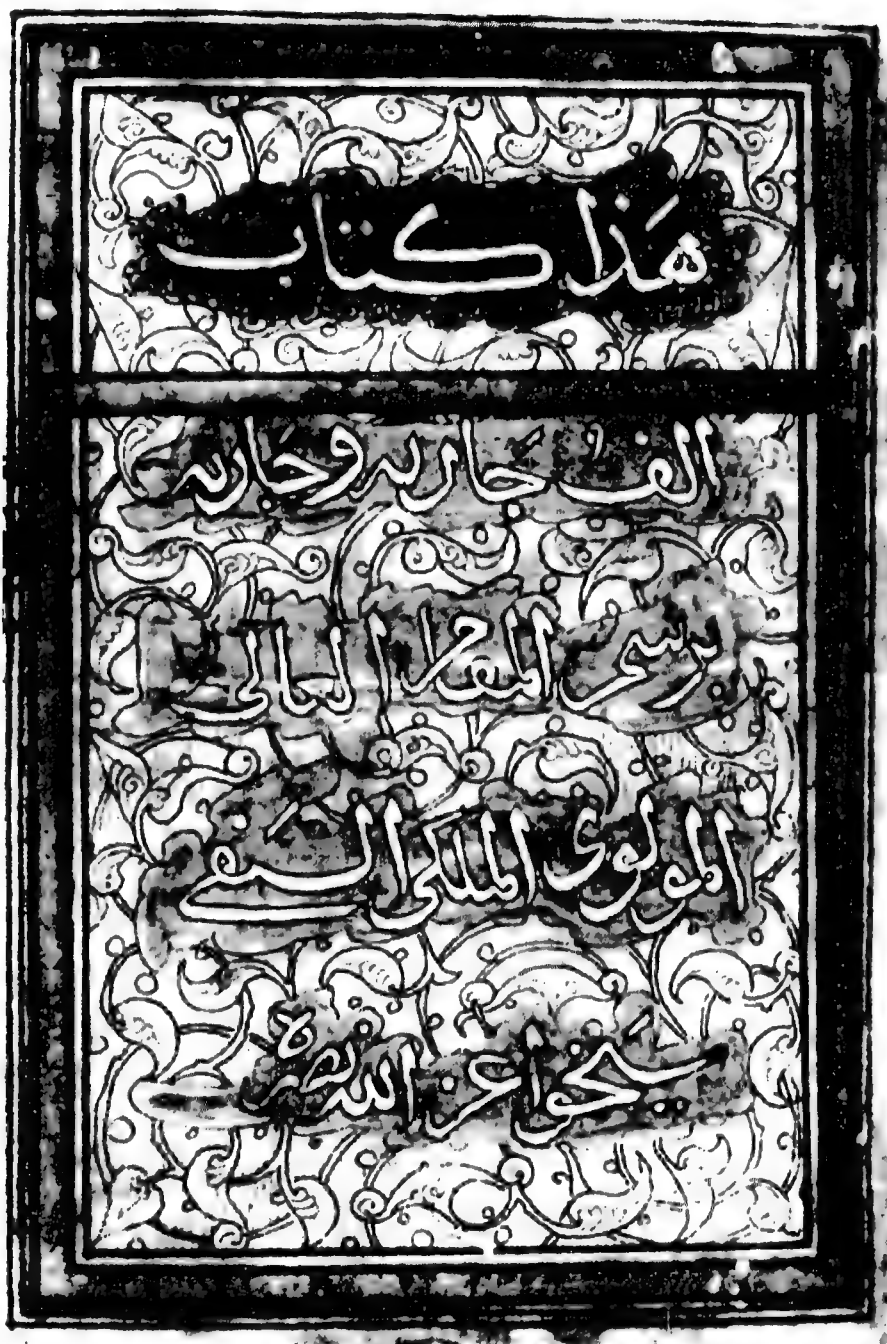 هَذا كتاب
الف جَاريه وجَاريه
برسم المقر العالى
المولوى الملكى السيفى
يخوا عز الله نصره